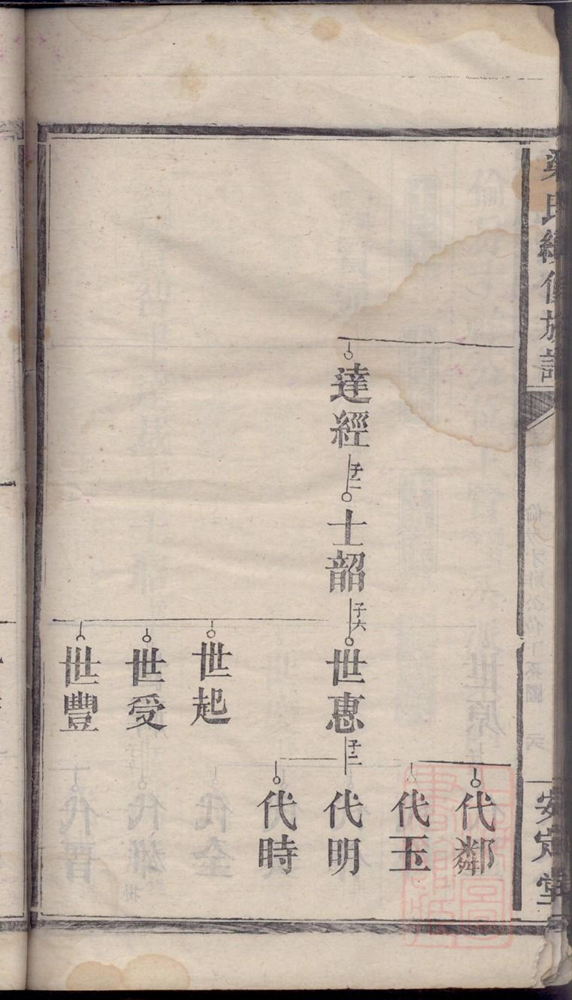 梁氏續修族譜
安定堂
達經
子二
士韶
子六
世惠
子二
世起
世受
世豐
代鄰
代玉
代明
代時